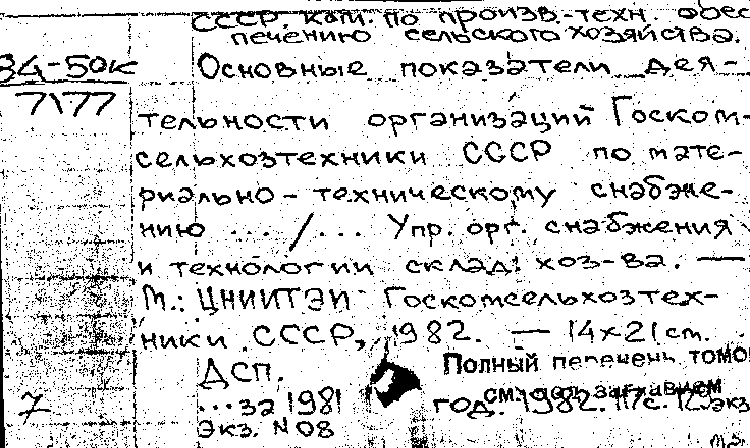 СССР. Ком. по произв.-техн. обес
печению сельского хозяйства.
84-50к Основные показатели дея-
7177
тельности организаций Госком-
сельхозтехники СССР по мате-
риально-техническому снабже-
нию ... / ... Упр. орг. снабжения
и технологии склад. хоз-ва. —
М.: ЦНИИТЭИ Госкомсельхозтех-
ники СССР, 1982. — 14×21 см.
ДСП. Полный перечень томо
7 ... за 1981 год. 1982. 117с. 12экз
см. под заглавием
Экз. N 08